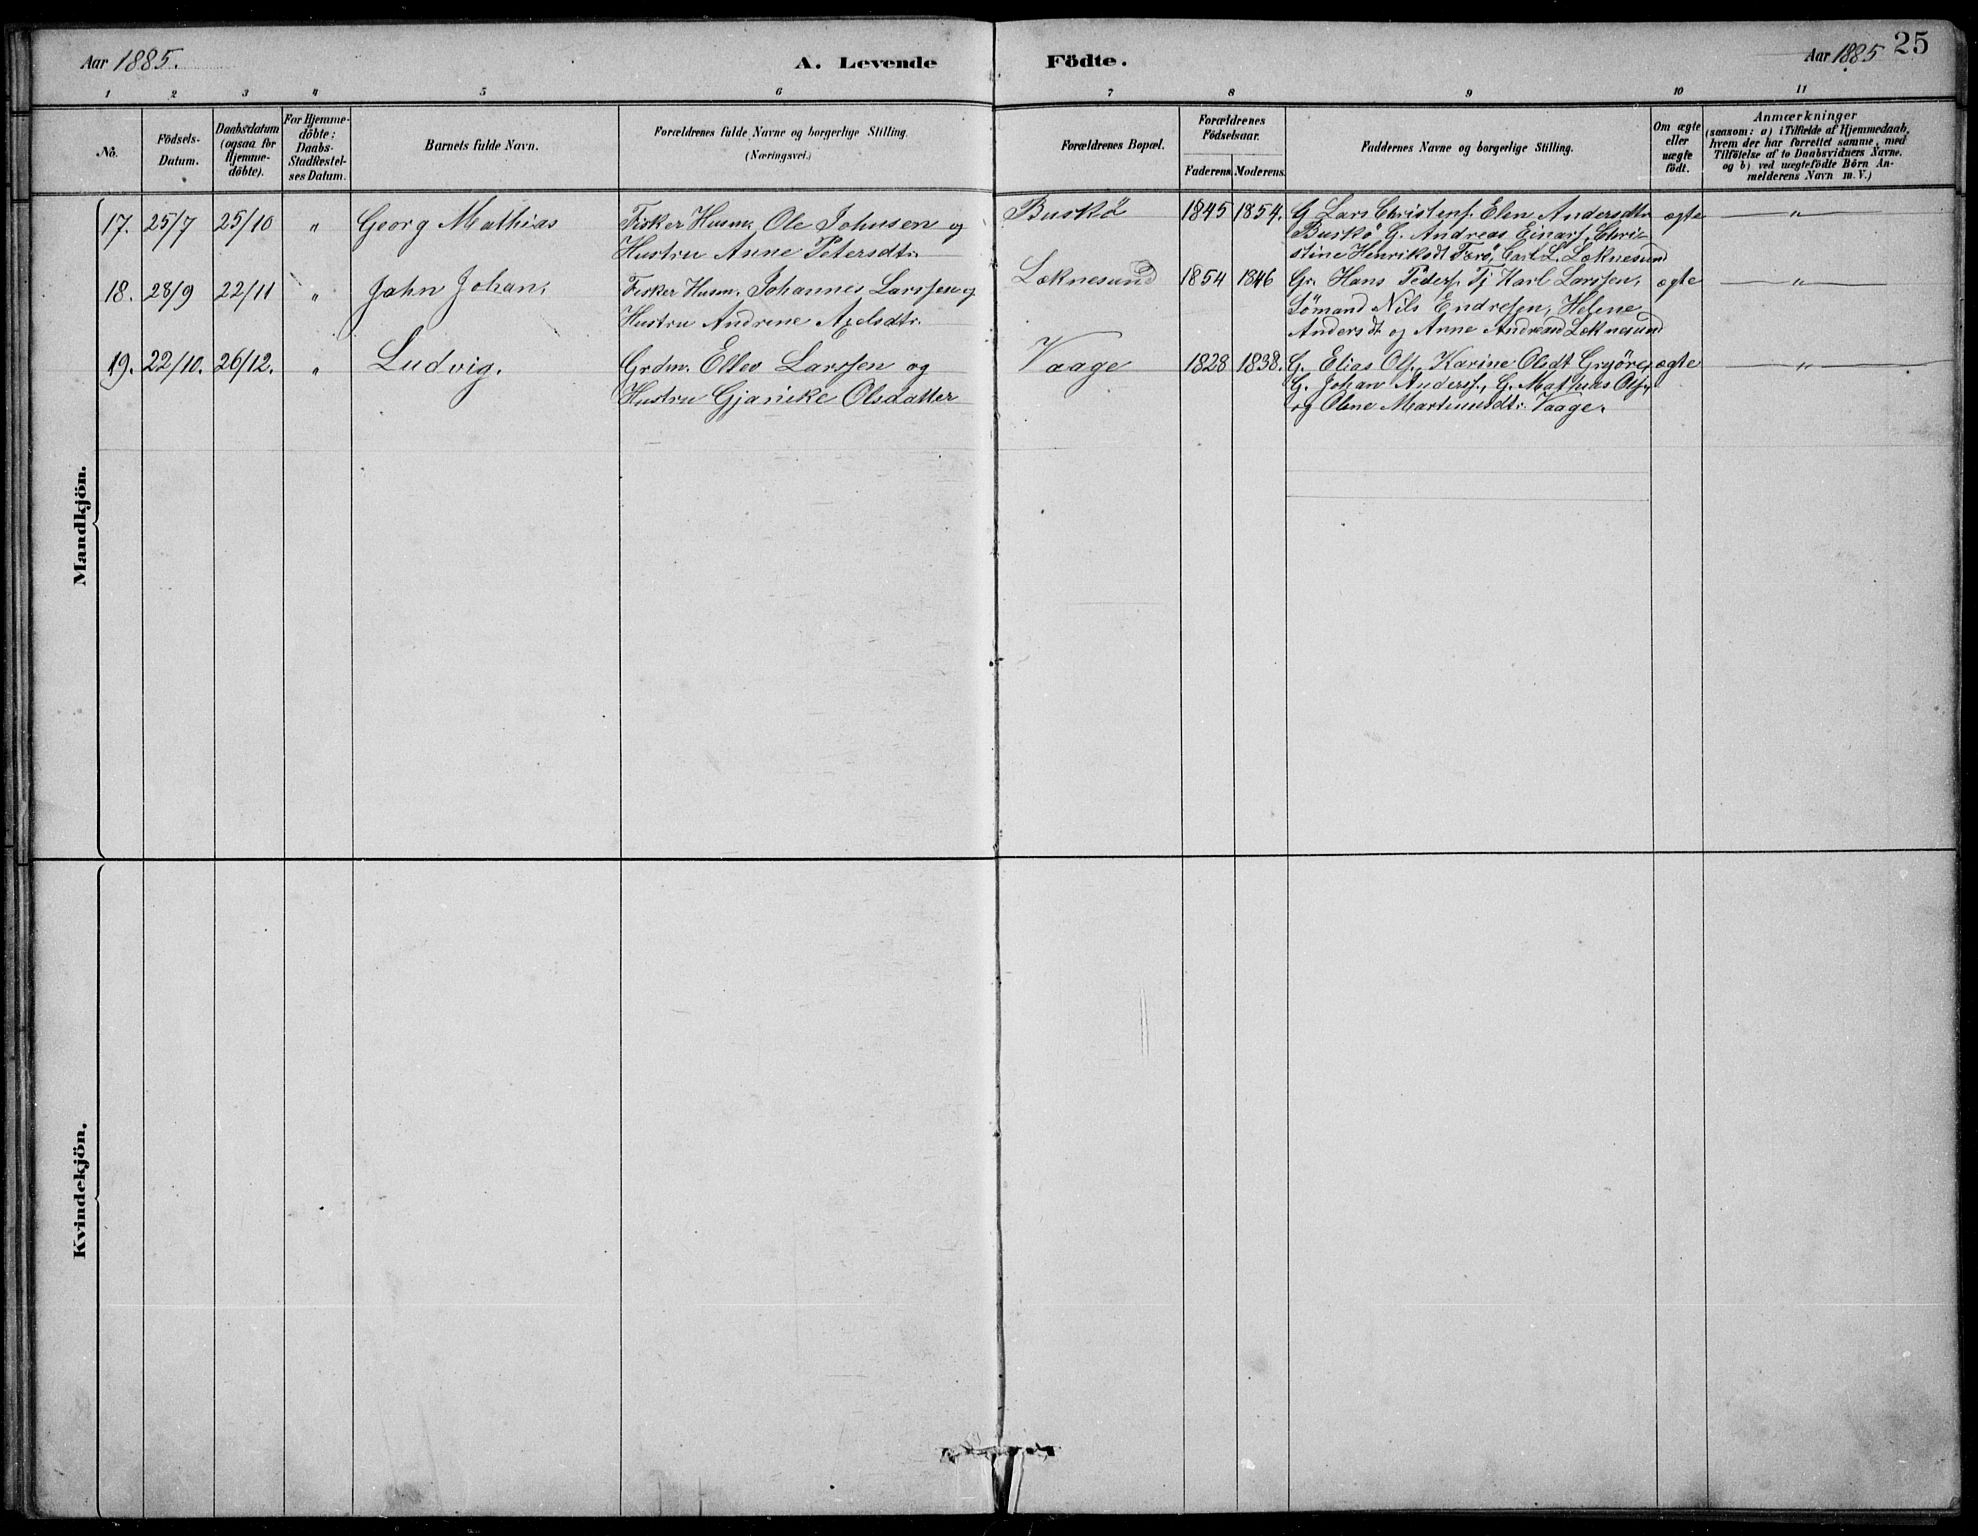 Aar 1885.
A. Levende Födte.
Aar 1885
25
1 2 3 4 5 6 7 8 9 10 11
No.
Födsels-
Datum.
Daabsdatum
(ogsaa for
Hjemme-
döbte).
For Hjemme-
döbte:
Daabs-
Stadfæstel-
ses Datum.
Barnets fulde Navn.
Forældrenes fulde Navne og borgerlige Stilling.
(Næringsvei.)
Forældrenes Bopæl.
Forældrenes
Födselsaar.
Faderens. Moderens.
Faddernes Navne og borgerlige Stilling.
Om ægte
eller
uægte
födt.
Anmærkninger
(saasom: a) i Tilfælde af Hjemmedaab,
hvem der har forrettet samme, med
Tilföielse af to Daabsvidners Navne.
og b) ved uægtefödte Börn An-
melderens Navn m. V.)
Mandkjön.
17. 25/7 25/10 " Georg Mathias
Fisker Husm. Ole Johnsen og
Hustru Anne Petersdtr.
Buskö 1845 1854.
G Lars Christens. Elen Andersdtr
Buskö G. Andreas Einars, Chri-
stine Henriksdt Færö, Carl L. Læknesund
ægte "
18. 28/9 22/11 " John Johan.
Fisker Husm. Johannes Larssen og
Hustru Andrine Axelsdtr.
Læknesund 1854 1846
Gr. Hans Peders. Tj Karl Larssen,
Sömand Nils Endresen, Helene
Andersdt og Anne Læknesund
ægte "
19. 22/10. 26/12. " Ludvig.
Grdm. Ellev Larssen og
Hustru Gjanike Olsdatter
Vaage 1828 1838.
G. Elias Ols. Karine Olsdt
G. Johan Anders., G. Mathias Ols.
og Oline Martinusdtr. Vaage.
ægte "
Kvindekjön.